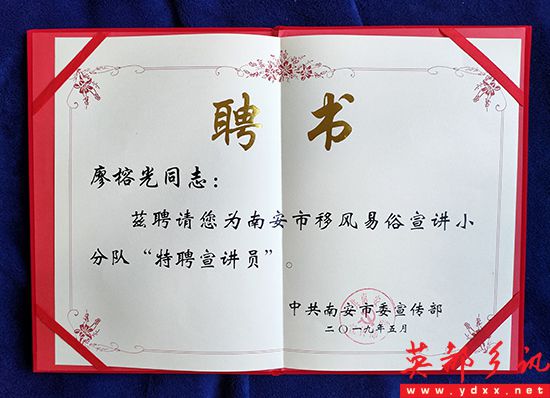 聘 书
廖榕光同志：
兹聘请您为南安市移风易俗宣讲小
分队“特聘宣讲员”。
中共南安市委宣传部
二〇一九年五月
英都乡讯
www.ydxx.net